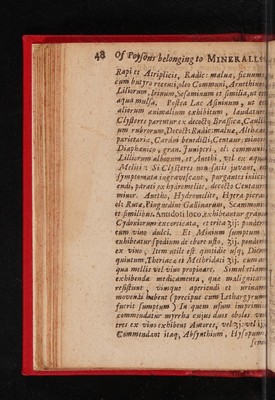 48 Of Poysons belonging to MINERALLS
Rapi et Atriplicis, Radic: maluæ, ficuum,
cum butyro recenti, oleo Communi, Anethino
Liliorum, Irinum, Sesaminum et similia, ut et
aqua mulsa. Postea Lac Asininum, ut et
aliorum animalium exhibitum, laudatur.
Clysteres parentur ex decocto Brassicæ,
um rubrorum, Decocti: Radic: maluæ, Altheæ
parietariæ, Cardui benedicti, Centaur: minor
Diaphenico, gran. Juniperi, el communi
Liliorum alborum, et Anethi, vel ex aqua
Melita Si Clysteres non satis juvant, et
symptomata ingravescant, purgantes
endi, parati ex hydromelite, decocto Centaur
minor. Anetho, Hydromelite, Hyera picra
oli Rutæ, Pinguedini Gallinarum, Scammon
et similibus. Antidoti loco, exhibeantur grana
Cydoniorum excorticata, et trita ʒij. ponder
cum vino dulci. Et Minium sumptum
exhibeatur spodium de ebure usto, ʒij. ponder
ex vino; Item utile est
quintum, Theriaca et Methridati ʒij. cum
qua mellis vel vino propinare. Simul etiam
exhibenda medicamenta, quæ malignitati
resistunt, vimque aperiendi et urinam
movendi habent (præcipue cum Lethargyrum
fuerit sumptum) In quem usum imprimis
commendatur myrrha cujus duos obolos
tres ex vino exhibent Autores, vel ʒj. vel ij.
Commendant itaq, Absynthium, Hysopum,